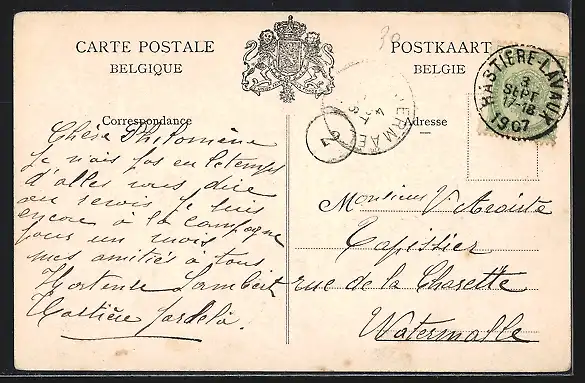 CARTE POSTALE
BELGIQUE
POSTKAART
BELGIË
39
HASTIERE-LAVAUX
3
SEPT
17-18
1907
ERMAE
4
67
Correspondance
Adresse
Chère Philomène
Je n'ais pas eu le temps
d'aller vous dire
au revoir je suis
encore à la campagne
pour un mois
mes amitiés à tous
Hortense Lambert
Hastière pardelà.
Monsieur V
Tapissier
rue de la
Watermalle